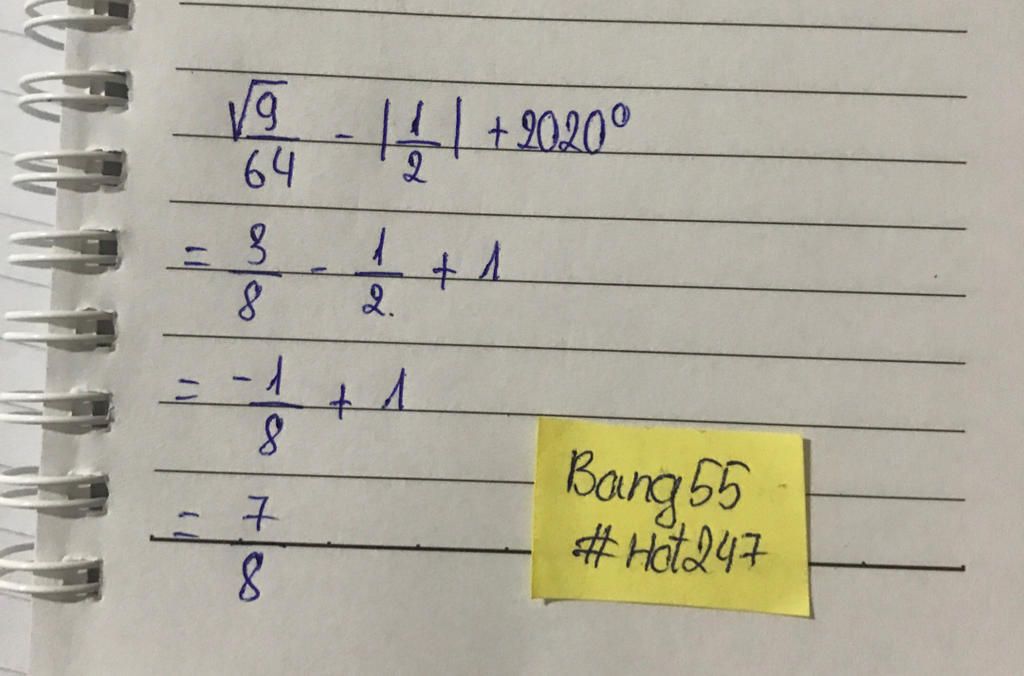 √9/64 - |1/2| + 2020⁰
= 3/8 - 1/2. + 1
= -1/8 + 1
= 7/8
Bang55
#Hot247